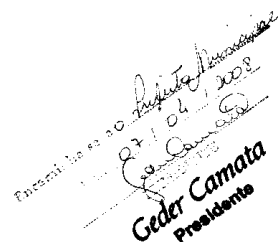 Encaminhe-se ao Prefeito Municipal
07 / 04 / 2008
Geder Camata
Presidente